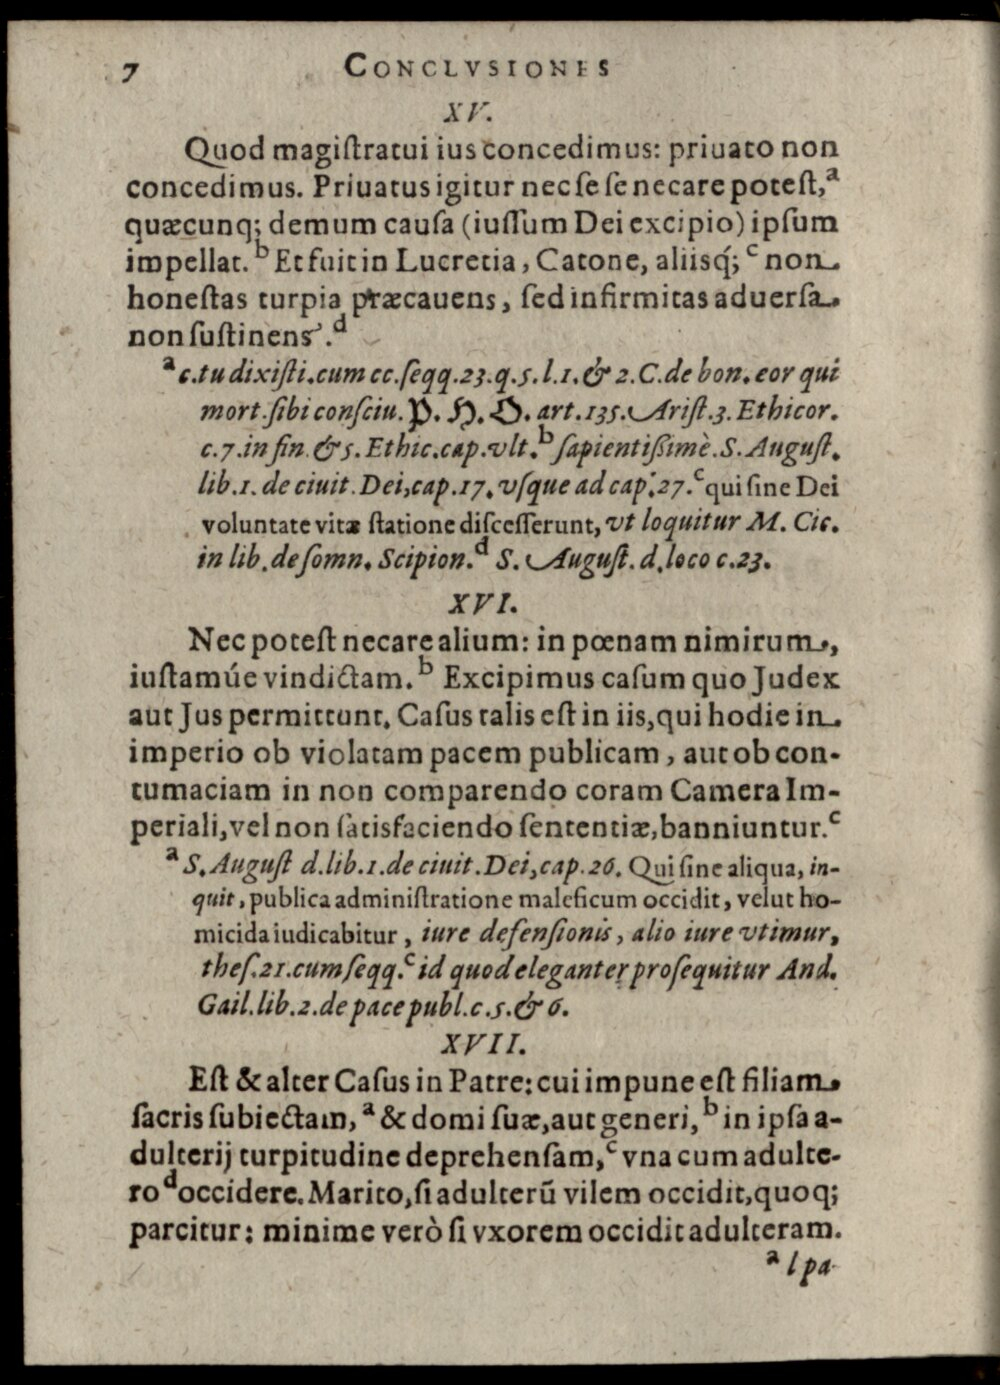 7 CONCLVSIONES
XV.
Quod magiſtratui ius concedimus: priuato non
concedimus. Priuatus igitur nec ſe ſe necare poteſt,ᵃ
quæcunq; demum cauſa (iuſſum Dei excipio) ipſum
impellat.ᵇ Et fuit in Lucretia, Catone, aliisq́;ᶜ non
honeſtas turpia præcauens, ſed infirmitas aduerſa
non ſuſtinens.ᵈ
ᵃ c.tu dixiſti.cum cc.ſeqq.23.q.5.l.1.& 2.C.de bon.eor qui
mort.ſibi conſciu. P. H. O. art.135. Ariſt.3.Ethicor.
c.7.in fin. & 5.Ethic.cap.vlt.ᵇ ſapientißimè.S.Auguſt.
lib.1.de ciuit.Dei,cap.17.vſque ad cap.27.ᶜ qui ſine Dei
voluntate vitæ ſtatione diſceſſerunt, vt loquitur M. Cic.
in lib.de ſomn. Scipion.ᵈ S. Auguſt. d.loco c.23.
XVI.
Nec poteſt necare alium: in pœnam nimirum,
iuſtamúe vindictam.ᵇ Excipimus caſum quo Judex
aut Jus permittunt. Caſus talis eſt in iis, qui hodie in
imperio ob violatam pacem publicam, aut ob con-
tumaciam in non comparendo coram Camera Im-
periali, vel non ſatisfaciendo ſententiæ, banniuntur.ᶜ
ᵃ S. Auguſt d.lib.1.de ciuit.Dei,cap.26. Qui ſine aliqua, in-
quit, publica adminiſtratione maleficum occidit, velut ho-
micida iudicabitur, iure defenſionis, alio iure vtimur,
theſ.21.cum ſeqq.ᶜ id quod eleganter proſequitur And.
Gail.lib.2.de pace publ.c.5.& 6.
XVII.
Eſt & alter Caſus in Patre: cui impune eſt filiam
ſacris ſubiectam,ᵃ & domi ſuæ, aut generi,ᵇ in ipſa a-
dulterij turpitudine deprehenſam,ᶜ vna cum adulte-
roᵈ occidere. Marito, ſi adulterū vilem occidit, quoq;
parcitur: minime verò ſi vxorem occidit adulteram.
ᵃ l pa-